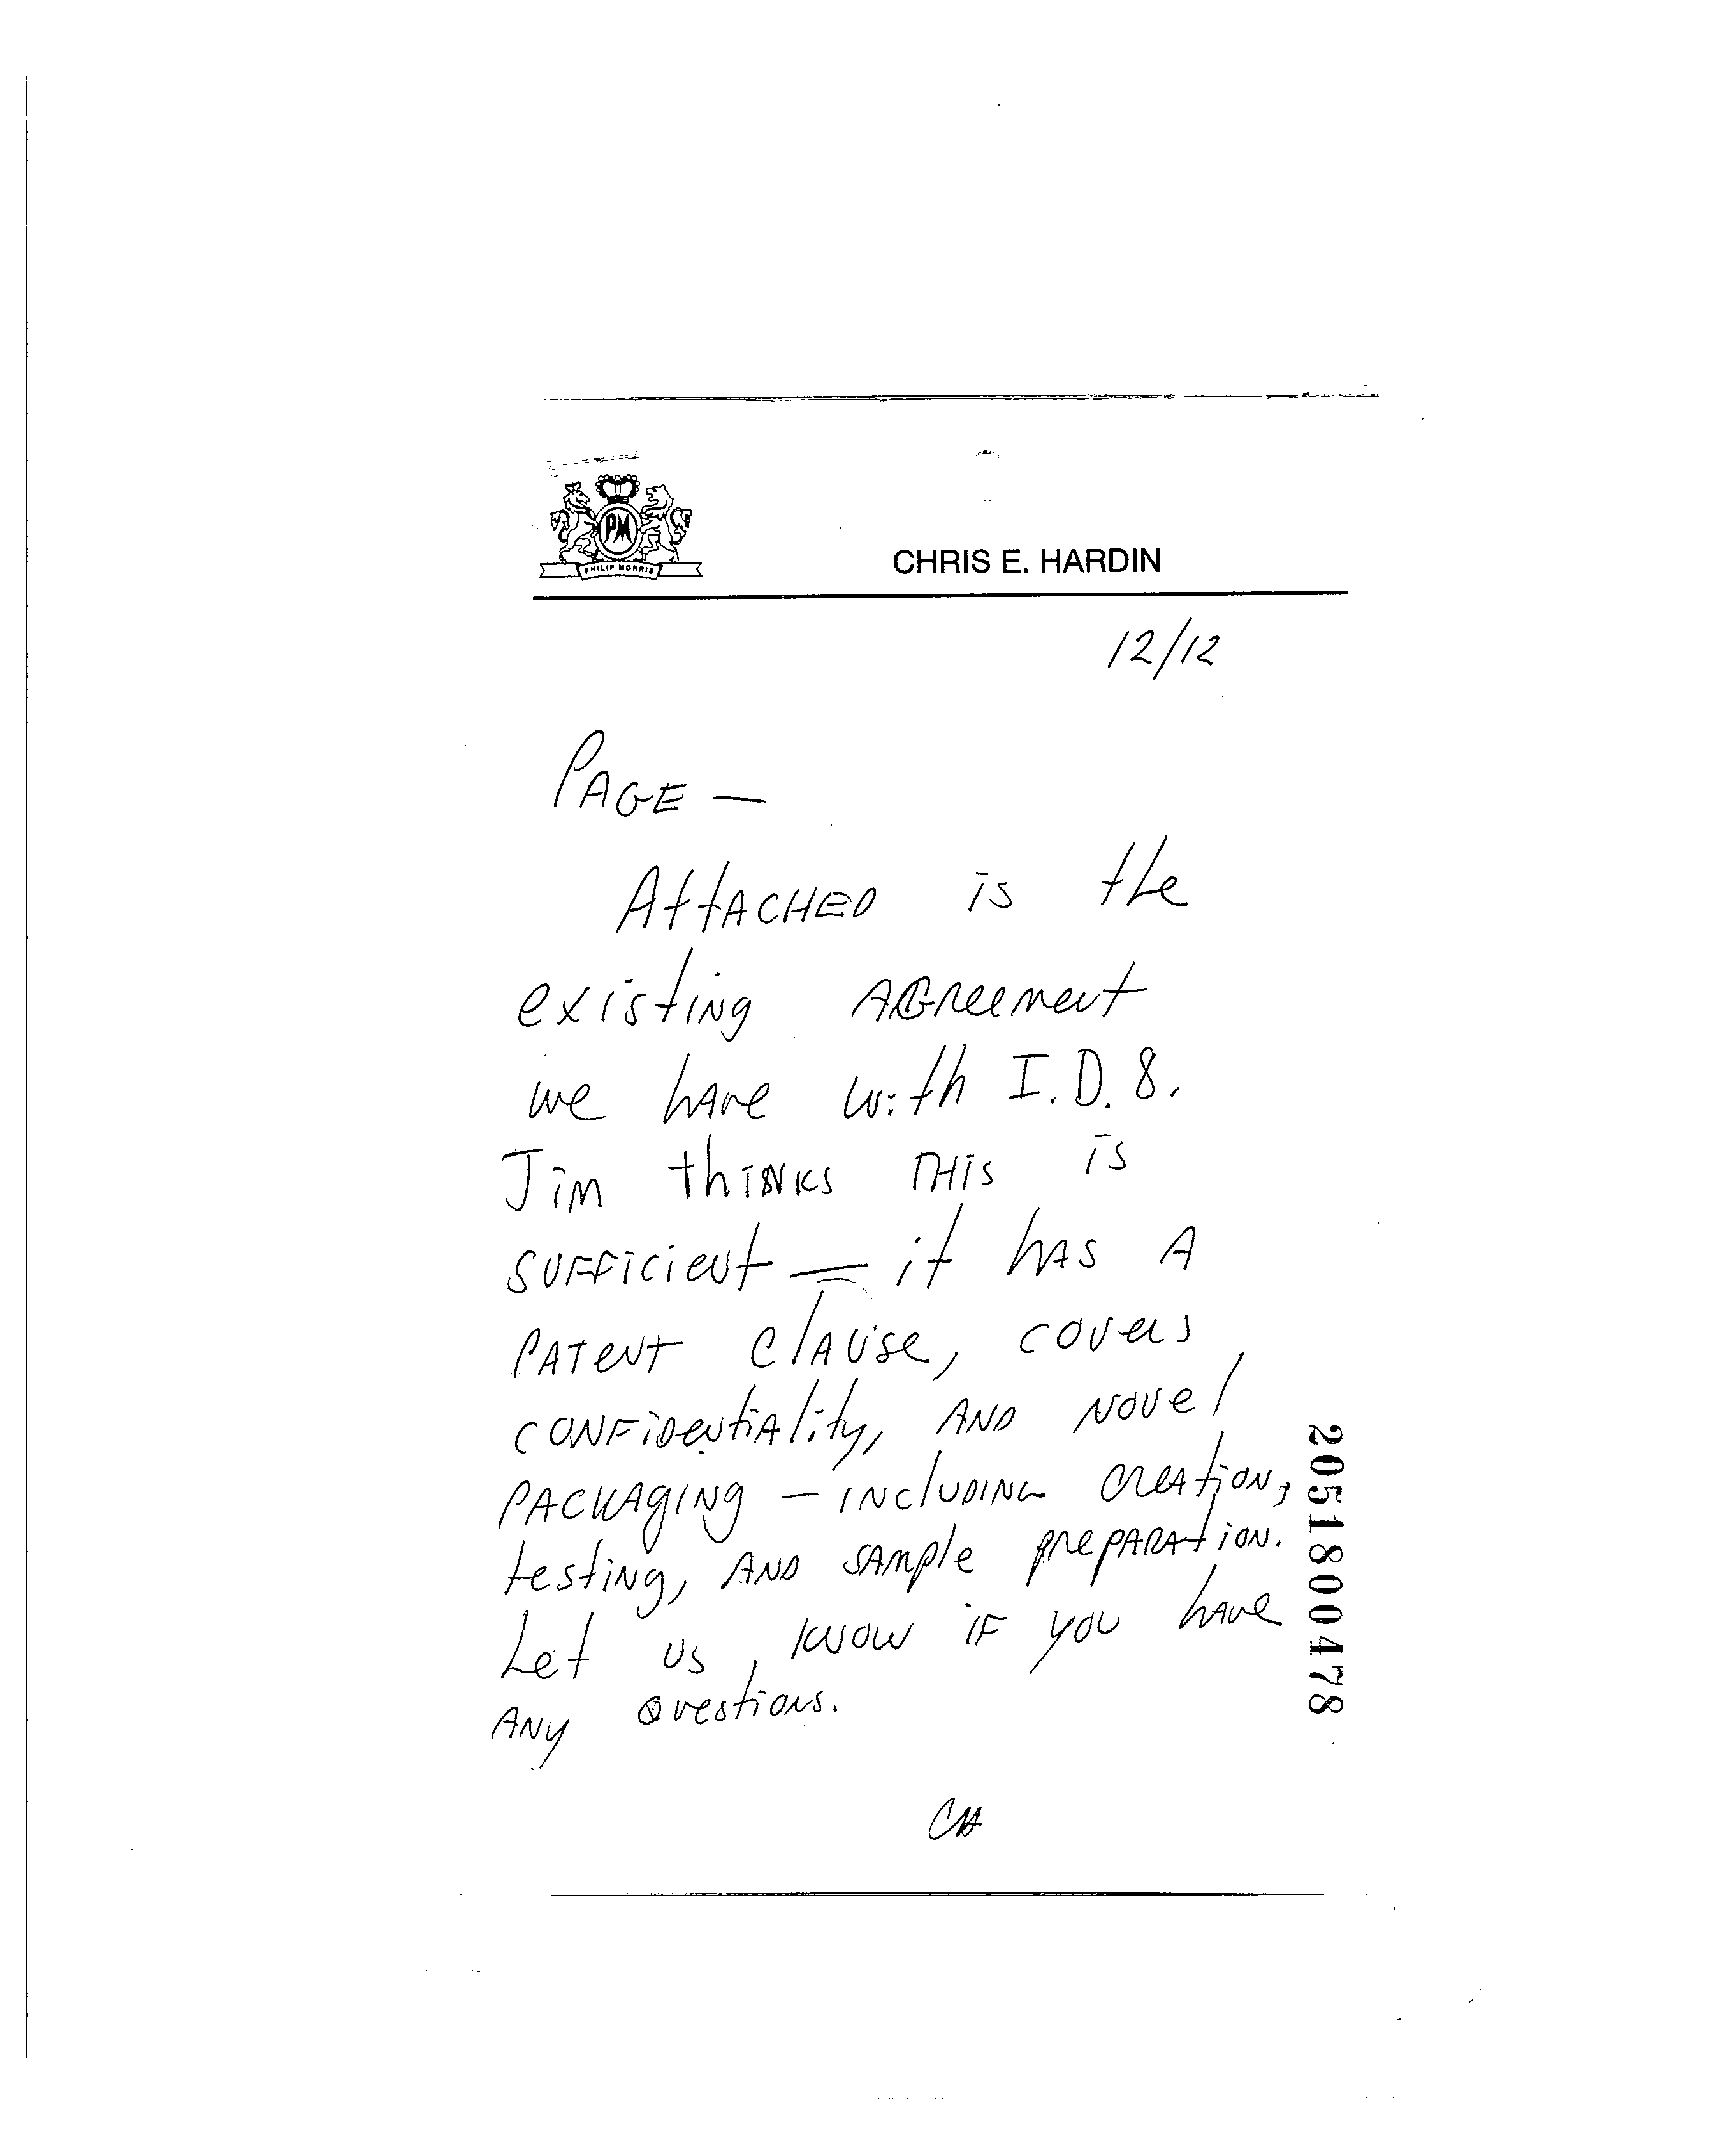 PM
PHILIP MORRIS
CHRIS E. HARDIN
12/12
PAGE —
AttACHED is the
existing AGreement
we have with I.D.8.
Jim thinks THis is
SUFFicient — it hAS A
PATENT ClAUse, covers
CONFiDentiAlity, AND Novel
PACKAgiNg — INclUDING CreAtioN,
testiNg, AND SAMple prepARAtioN.
Let us KNOW iF you hAve
ANy Questions.
CH
2051800478